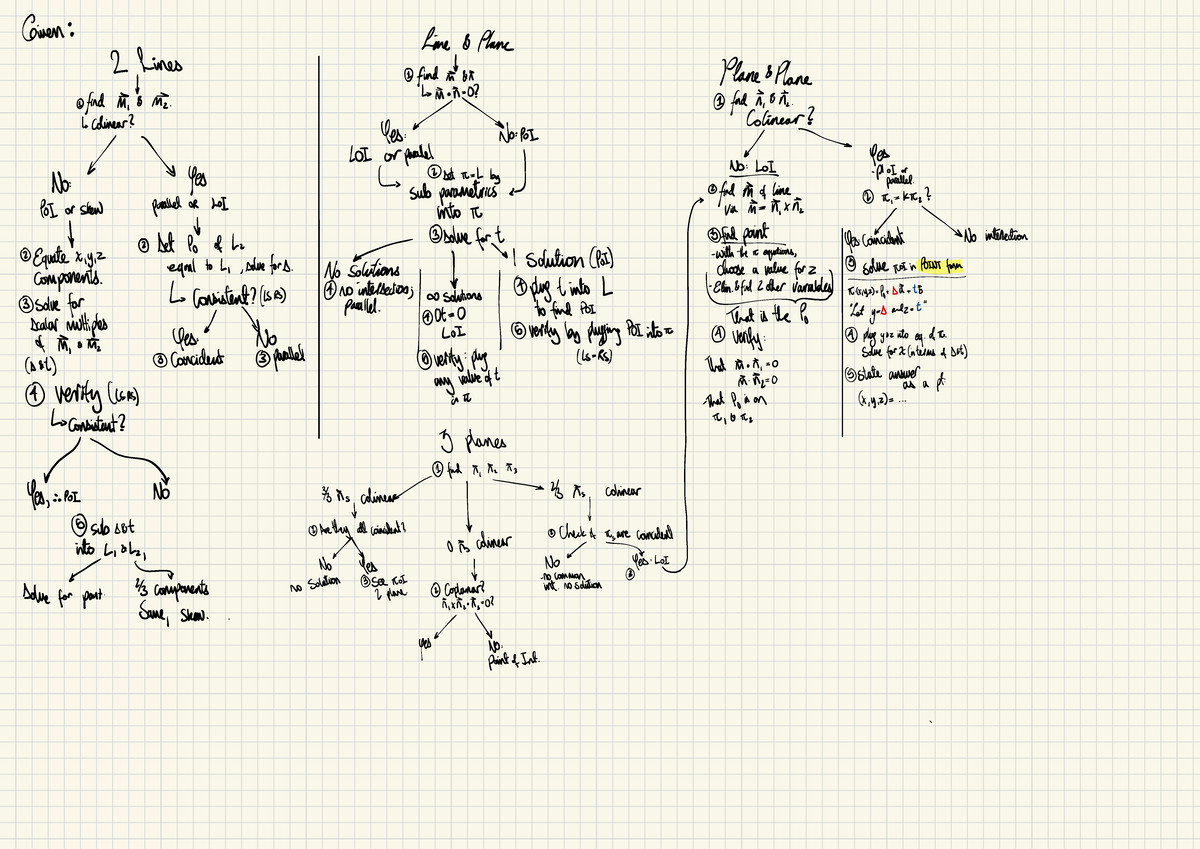 Given:
2 Lines
① find m⃗₁ & m⃗₂.
↳ Colinear?
No:
POI or skew
② Equate x,y,z
Components.
③ Solve for
scalar multiples
of m⃗₁ & m⃗₂
(s & t)
④ Verify (LS RS)
↳ Consistent?
Yes, ∴ POI
No
⑤ sub s & t
into L₁ & L₂,
Solve for point.
2/3 components
Same, Skew.
Yes
parallel or LOI
② Set P₀ of L₂
equal to L₁, solve for s.
↳ Consistent? (LS RS)
Yes:
③ Coincident
No
③ parallel
Line & Plane
① find m⃗ & n⃗
↳ m⃗ · n⃗ = 0?
Yes:
LOI or parallel
No: POI
② Set π = L by
sub parametrics
into π
③ Solve for t
No Solutions
④ no intersection;
parallel.
∞ Solutions
④ 0t = 0
LOI
⑤ verify: plug
any value of t
in π
1 Solution (POI)
④ plug t into L
to find POI
⑤ verify by plugging POI into π
(LS = RS)
3 planes
① find n⃗₁ n⃗₂ n⃗₃
3/3 n⃗s colinear
② Are they all coincident?
No
no Solution
Yes
③ See πOI
2 plane
0 n⃗s colinear
② Coplanar?
n⃗₁ × n⃗₂ · n⃗₃ = 0?
yes
No:
Point of Int.
2/3 n⃗s colinear
② Check if πs are coincident
No
-no common
int. no solution
Yes: LOI
③
Plane & Plane
① find n⃗₁ & n⃗₂.
Colinear?
No: LOI
② find m⃗ of line
via m⃗ = n⃗₁ × n⃗₂
③ find point
-with the π equations,
choose a value for z
-Elim. & find 2 other variables
That is the P₀
④ Verify:
That m⃗ · n⃗₁ = 0
m⃗ · n⃗₂ = 0
-That P₀ is on
π₁ & π₂
Yes
-plOI or
parallel.
② π₁ = kπ₂?
Yes Coincident
③ solve πOI in POINT form
π(x,y,z) = P₀ + sa⃗ + tb⃗
"Let y=s and z=t"
④ plug y & z into eq. of π.
Solve for x (in terms of s & t)
⑤ state answer
as a pt.
(x,y,z) = ...
No intersection